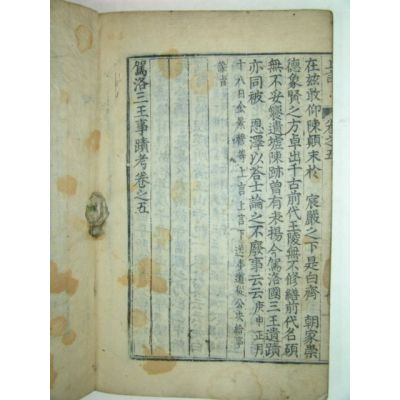 上言 卷之五
在玆敢仰陳顚末於 宸嚴之下是白齊 朝家崇
德象賢之方卓出千古前代王陵無不修繕前代名碩
無不妥遺墟陳跡曾有未揚今駕洛國三王遺蹟
亦同被 恩澤以答士論之不廢事云云庚申正月
十八日金等上言下送本道公決給事
駕洛三王事蹟考卷之五